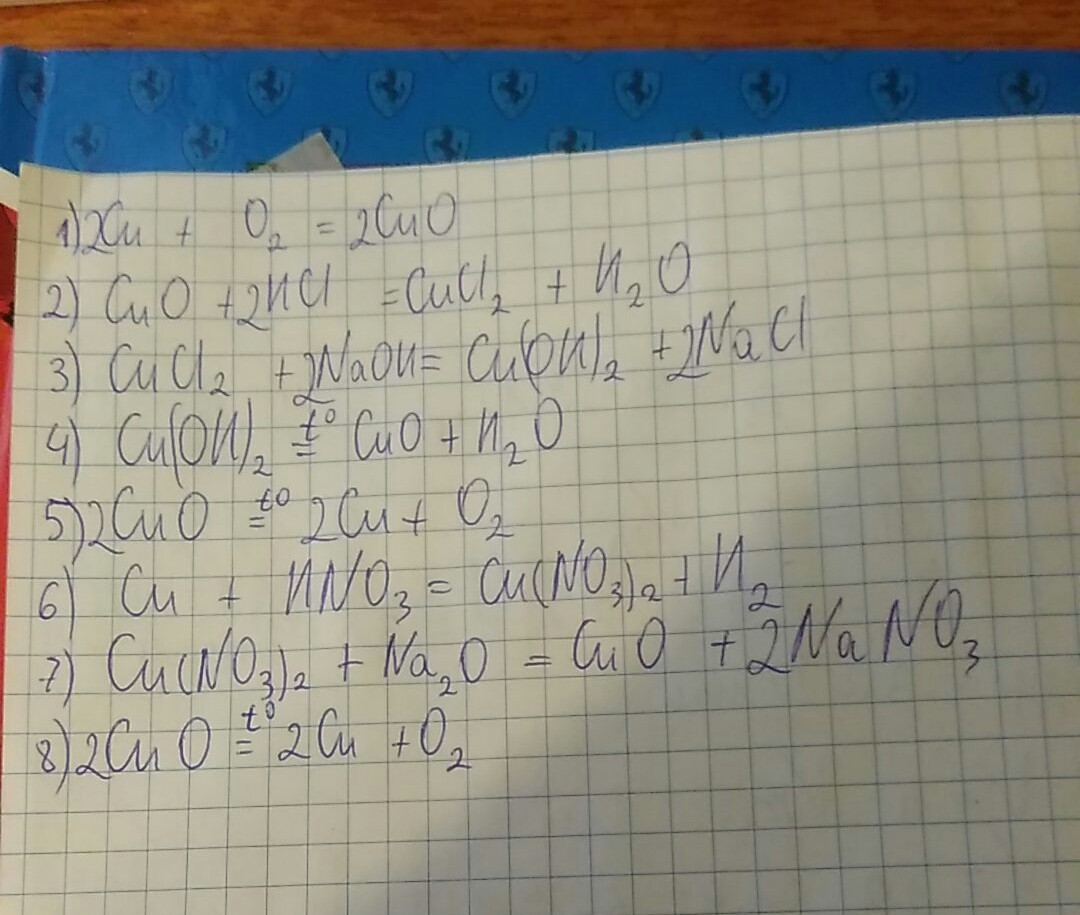 1) 2Cu + O₂ = 2CuO
2) CuO + 2HCl = CuCl₂ + H₂O
3) CuCl₂ + 2NaOH = Cu(OH)₂ + 2NaCl
4) Cu(OH)₂ t°= CuO + H₂O
5) 2CuO t°= 2Cu + O₂
6) Cu + HNO₃ = Cu(NO₃)₂ + H₂
7) Cu(NO₃)₂ + Na₂O = CuO + 2NaNO₃
8) 2CuO t°= 2Cu + O₂